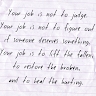 Your job is not to judge.
Your job is not to figure out
if someone deserves something.
Your job is to lift the fallen,
to restore the broken,
and to heal the hurting.